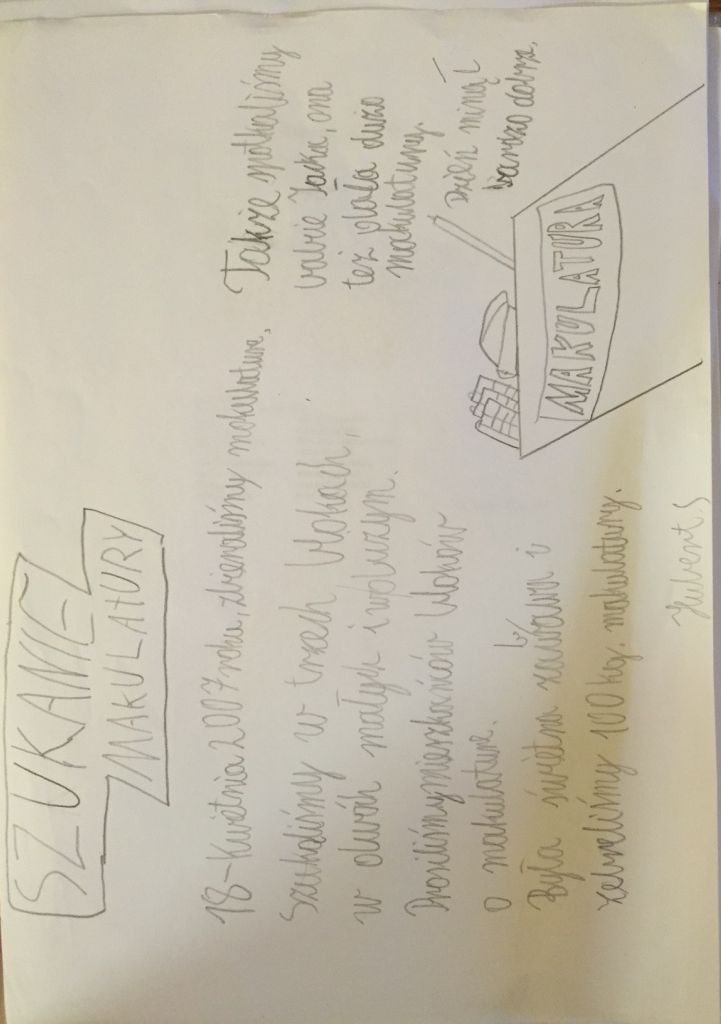 SZUKANIE
MAKULATURY
18-Kwietnia 2007 roku, zbieraliśmy makulature,
Szukaliśmy w trzech blokach,
w dwóh małych i w dużym.
Prosiliśmy mieszkańców bloków
o makulature.
Była świetna zabawa i
zebraliśmy 100 kg. makulatury.
Także spotkaliśmy
babcie Jacka, ona
też dała dużo
makulatury.
Dzień minął
bardzo dobrze.
MAKULATURA
Hubert S